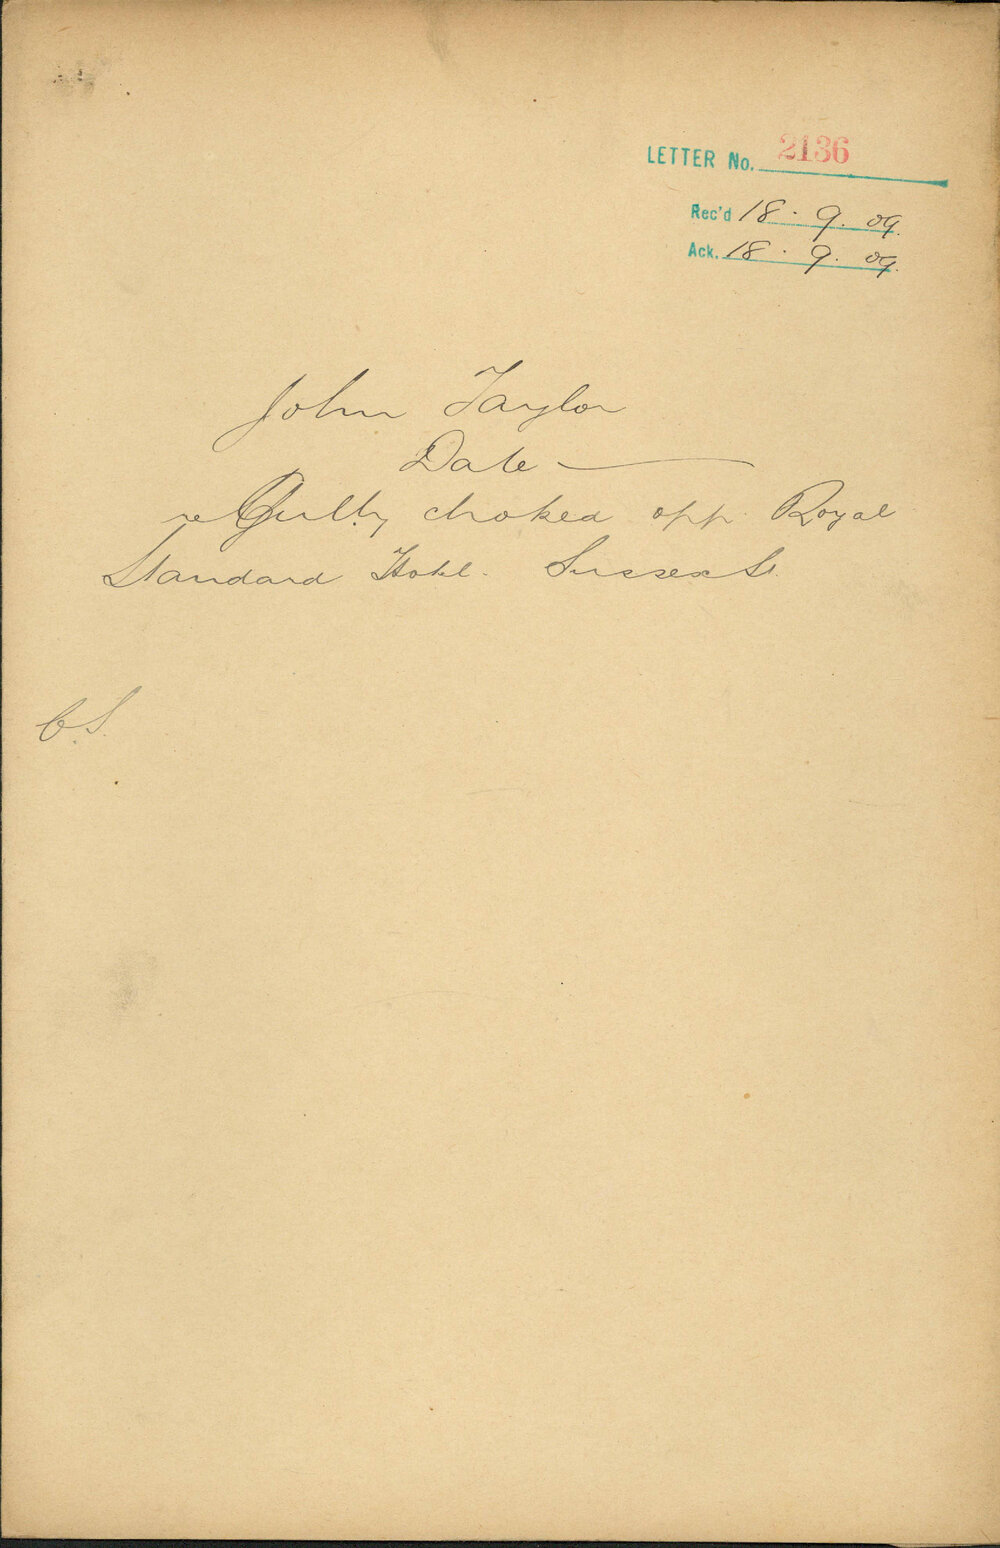 LETTER No. 2136
Rec'd 18. 9. 09.
Ack. 18. 9. 09.
John Taylor
Date —
re Gully choked opp. Royal
Standard Hotel. Sussex St.
C.S.